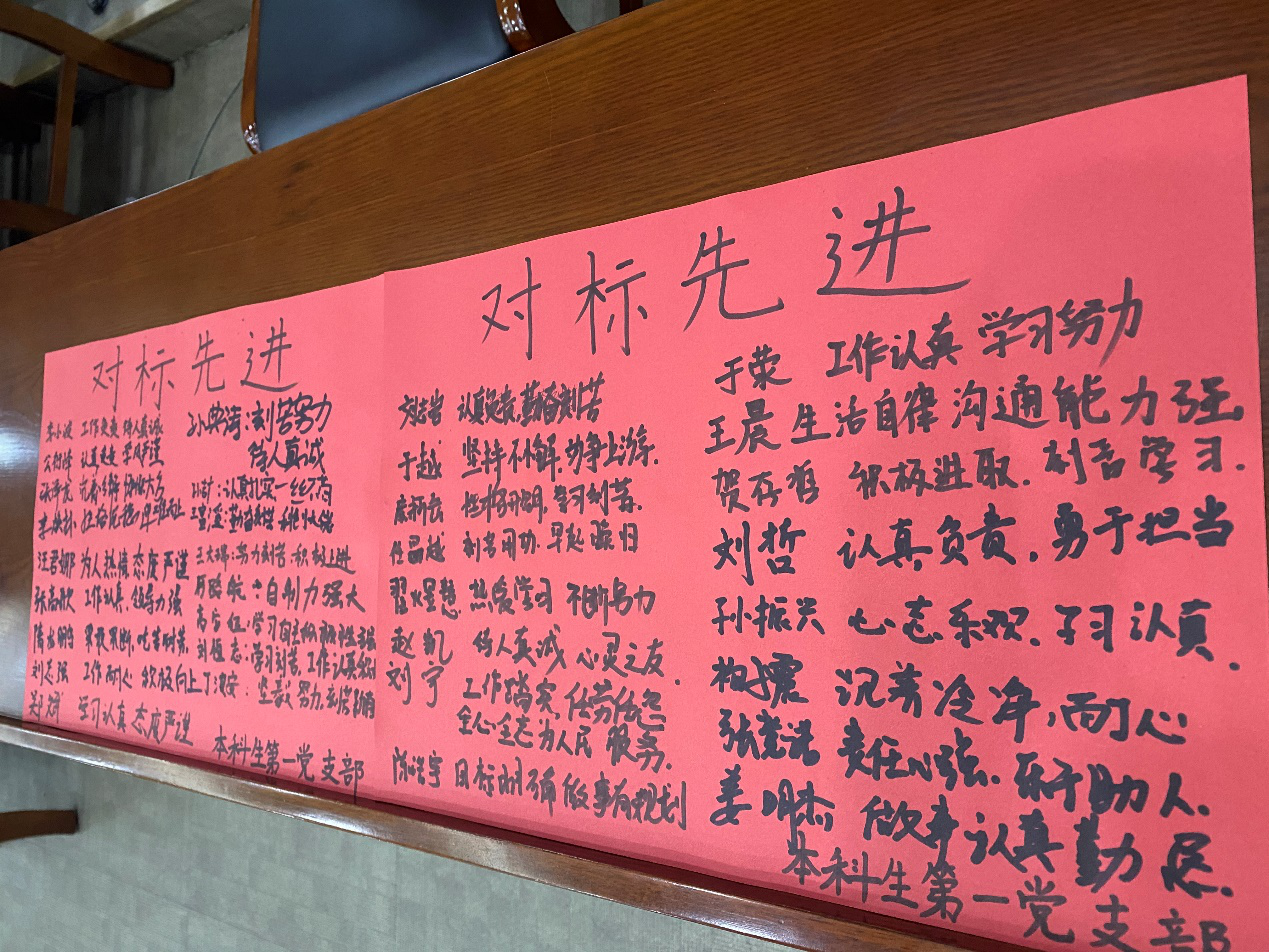 对标先进
工作负责 待人真诚
认真负责 学风严谨
汪君娜 为人热情 态度严谨
张高欣 工作认真,领导力强
果敢果断,吃苦耐劳
刘志强 工作耐心 积极向上
学习认真 态度严谨
孙典涛:刻苦努力
待人真诚
认真扎实一丝不苟
努力刻苦 积极上进
自制力强大
学习刻苦,工作认真
坚毅 努力,刻苦
本科生第一党支部
对标先进
认真负责,勤奋刻苦
于越 坚持不懈,力争上游.
性格开朗,学习刻苦.
任晶越 刻苦用功.早起晚归
翟煜慧 热爱学习 不断努力
赵凯 待人真诚 心灵之友.
刘宁 工作踏实,任劳任怨
全心全意为人民服务.
目标明确 做事有规划
于荣 工作认真 学习努力
王晨 生活自律 沟通能力强.
贺存哲 积极进取.刻苦学习.
刘哲 认真负责,勇于担当
孙振兴 心态乐观.学习认真.
沉着冷净,耐心
责任心强.乐于助人.
姜明杰 做事认真勤恳.
本科生第一党支部